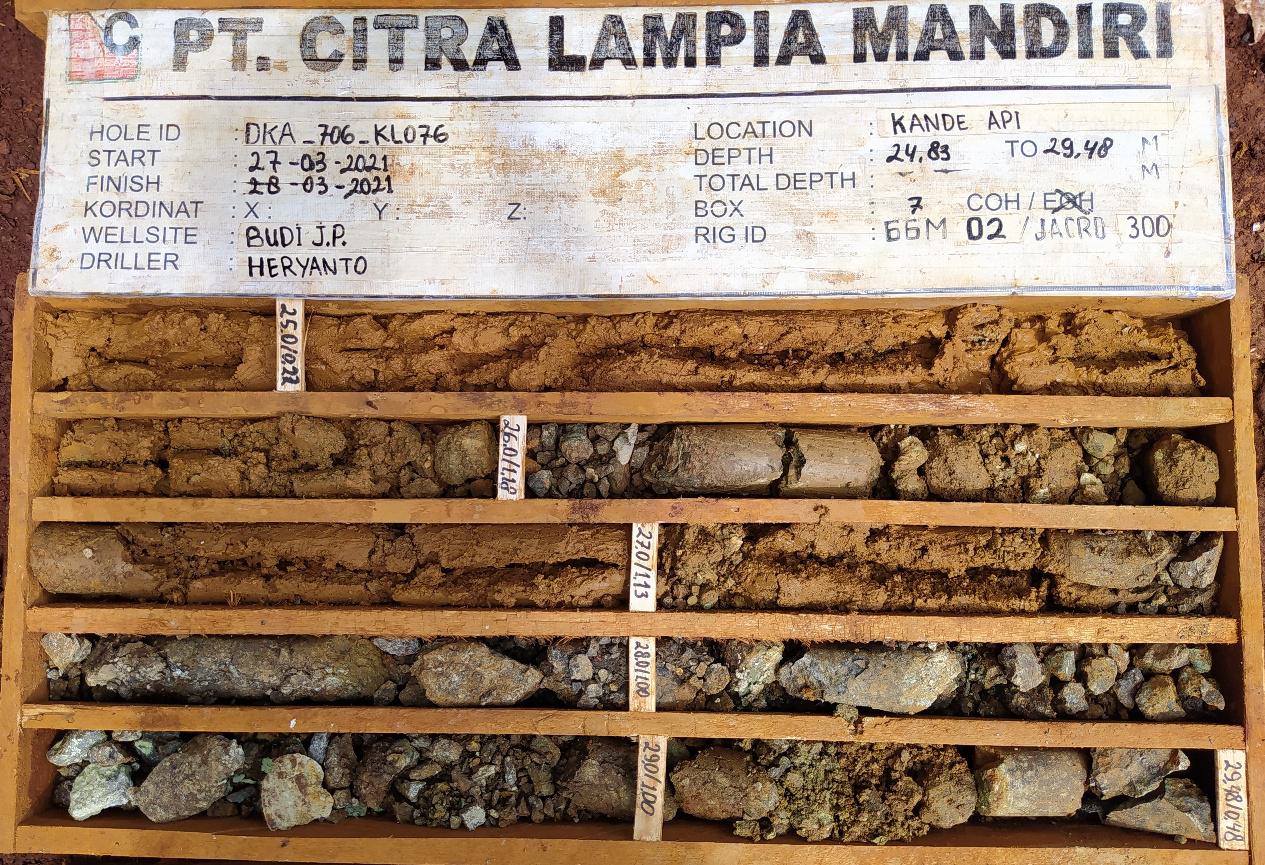 C PT. CITRA LAMPIA MANDIRI
HOLE ID : DKA_706_KL076
START : 27-03-2021
FINISH : 28-03-2021
KORDINAT : X: Y: Z:
WELLSITE : BUDI J.P.
DRILLER : HERYANTO
LOCATION : KANDE API
DEPTH : 24,83 TO 29,48 M
TOTAL DEPTH : M
BOX : 7 COH / EOH
RIG ID : GGM 02 / JACRO 300
25.0/0.22
26.0/1.18
27.0/1.13
28.0/1.00
29.0/1.00
29.48/0.48